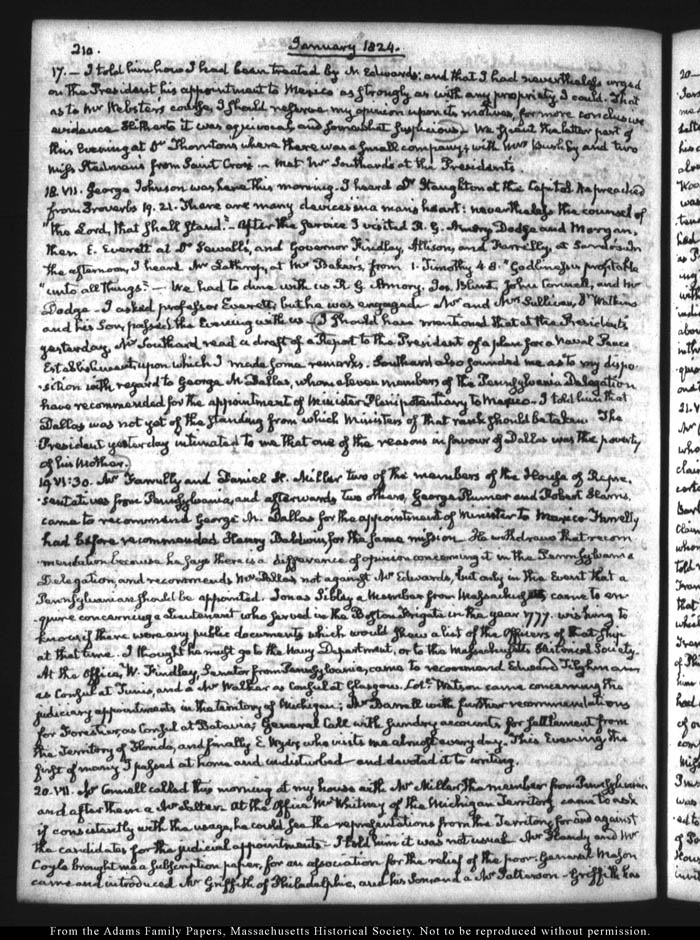 210. January 1824.
17. — I told him how I had been treated by Mr Edwards: and that I had nevertheless urged
on the President his appointment to Mexico as strongly as with any propriety I could. That
as to Mr Webster's course, I should reserve my opinion upon its motives, for more conclusive
evidence. Hitherto it was equivocal and somewhat suspicious. We spent the latter part of
this Evening at Dr Thornton's where there was a small company; with Mrs Bushby and two
Miss Stedman's from Saint Croix — Met Mr Southard at the Presidents
18. VII. George Johnson was here this morning. I heard Dr Staughton at the Capitol. He preached
from Proverbs 19. 21. There are many devices in a man's heart: nevertheless the counsel of
"the Lord, that shall stand." — After the service I visited R. G. Amory, Dodge and Morgan,
then E. Everett at Dr Sewall's, and Governor Findlay, Allison, and Farrelly, at
the afternoon, I heard Mr Lathrop, at Mr Baker's, from 1. Timothy 4. 8. "Godliness is profitable
"unto all things." — We had to dine with us R. G. Amory, Jos. Blunt, John Connell, and Mr
Dodge — I asked professor Everett, but he was engaged. Mr and Mrs Sullivan, Dr Watkins
and his Son, passed the Evening with us — I should have mentioned that at the President's
yesterday, Mr Southard read a draft of a Report to the President of a plan for a Naval Peace
Establishment, upon which I made some remarks. Southard also sounded me as to my dispo-
-sition with regard to George M. Dallas, whom eleven members of the Pennsylvania Delegation
have recommended for the appointment of Minister Plenipotentiary to Mexico. I told him that
Dallas was not yet of the standing from which Ministers of that rank should be taken. The
President yesterday intimated to me that one of the reasons in favour of Dallas was the poverty
of his Mother.
19. VI:30. Mr Farrelly and Daniel H. Miller two of the members of the House of Repre-
-sentatives from Pennsylvania, and afterwards two others, George Plumer and Robert Harris,
came to recommend George M. Dallas for the appointment of Minister to Mexico. Farrelly
had before recommended Henry Baldwin for the same mission. He withdraws that recom-
mendation because he says there is a difference of opinion concerning it in the Pennsylvania
Delegation, and recommends Mr Dallas not against Mr Edwards, but only in the Event that a
Pennsylvanian should be appointed. Jonas Sibley a Member from Massachusetts came to en-
quire concerning a Lieutenant who served in the Boston frigate in the year 777. wishing to
know if there were any public documents which would shew a list of the Officers of that ship
at that time. I thought he must go to the Navy Department, or to the Massachusetts Historical Society.
At the Office, W. Findlay, Senator from Pennsylvania, came to recommend Edward Tilghman
as Consul at Tunis, and a Mr Walker as Consul at Glasgow. Watson came concerning the
judiciary appointments in the territory of Michigan; Mr Barrell with further recommendations
for Forestier, as Consul at Batavia; General Call with sundry accounts for settlement from
the Territory of Florida, and finally E. Wyer, who visits me almost every day. This Evening, the
first of many, I passed at home and undisturbed — and devoted it to writing.
20. VII. Mr Connell called this morning at my house with Mr Miller the member from Pennsylvania,
and after them a Mr At the Office Mr Whitney of the Michigan Territory came to ask
if consistently with the usage, he could see the representations from the Territory for and against
the candidates for the judicial appointments — I told him it was not usual. Mr Handy and Mr
Coyle brought me a subscription paper, for an association for the relief of the poor. General Mason
came and introduced Mr Griffith of Philadelphia, and his Son and a Mr Patterson — Griffith has
From the Adams Family Papers, Massachusetts Historical Society. Not to be reproduced without permission.